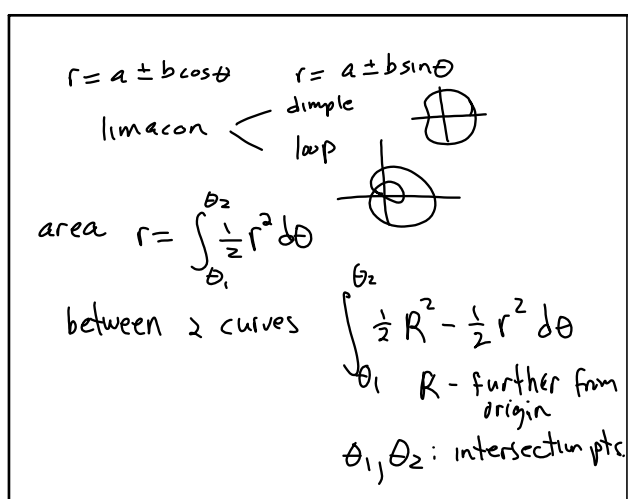 r = a ± b cosθ   r = a ± b sinθ
limacon < dimple
loop
area r = ∫_{θ₁}^{θ₂} ½ r² dθ
between 2 curves ∫_{θ₁}^{θ₂} ½ R² - ½ r² dθ
R - further from
origin
θ₁, θ₂ : intersection pts.